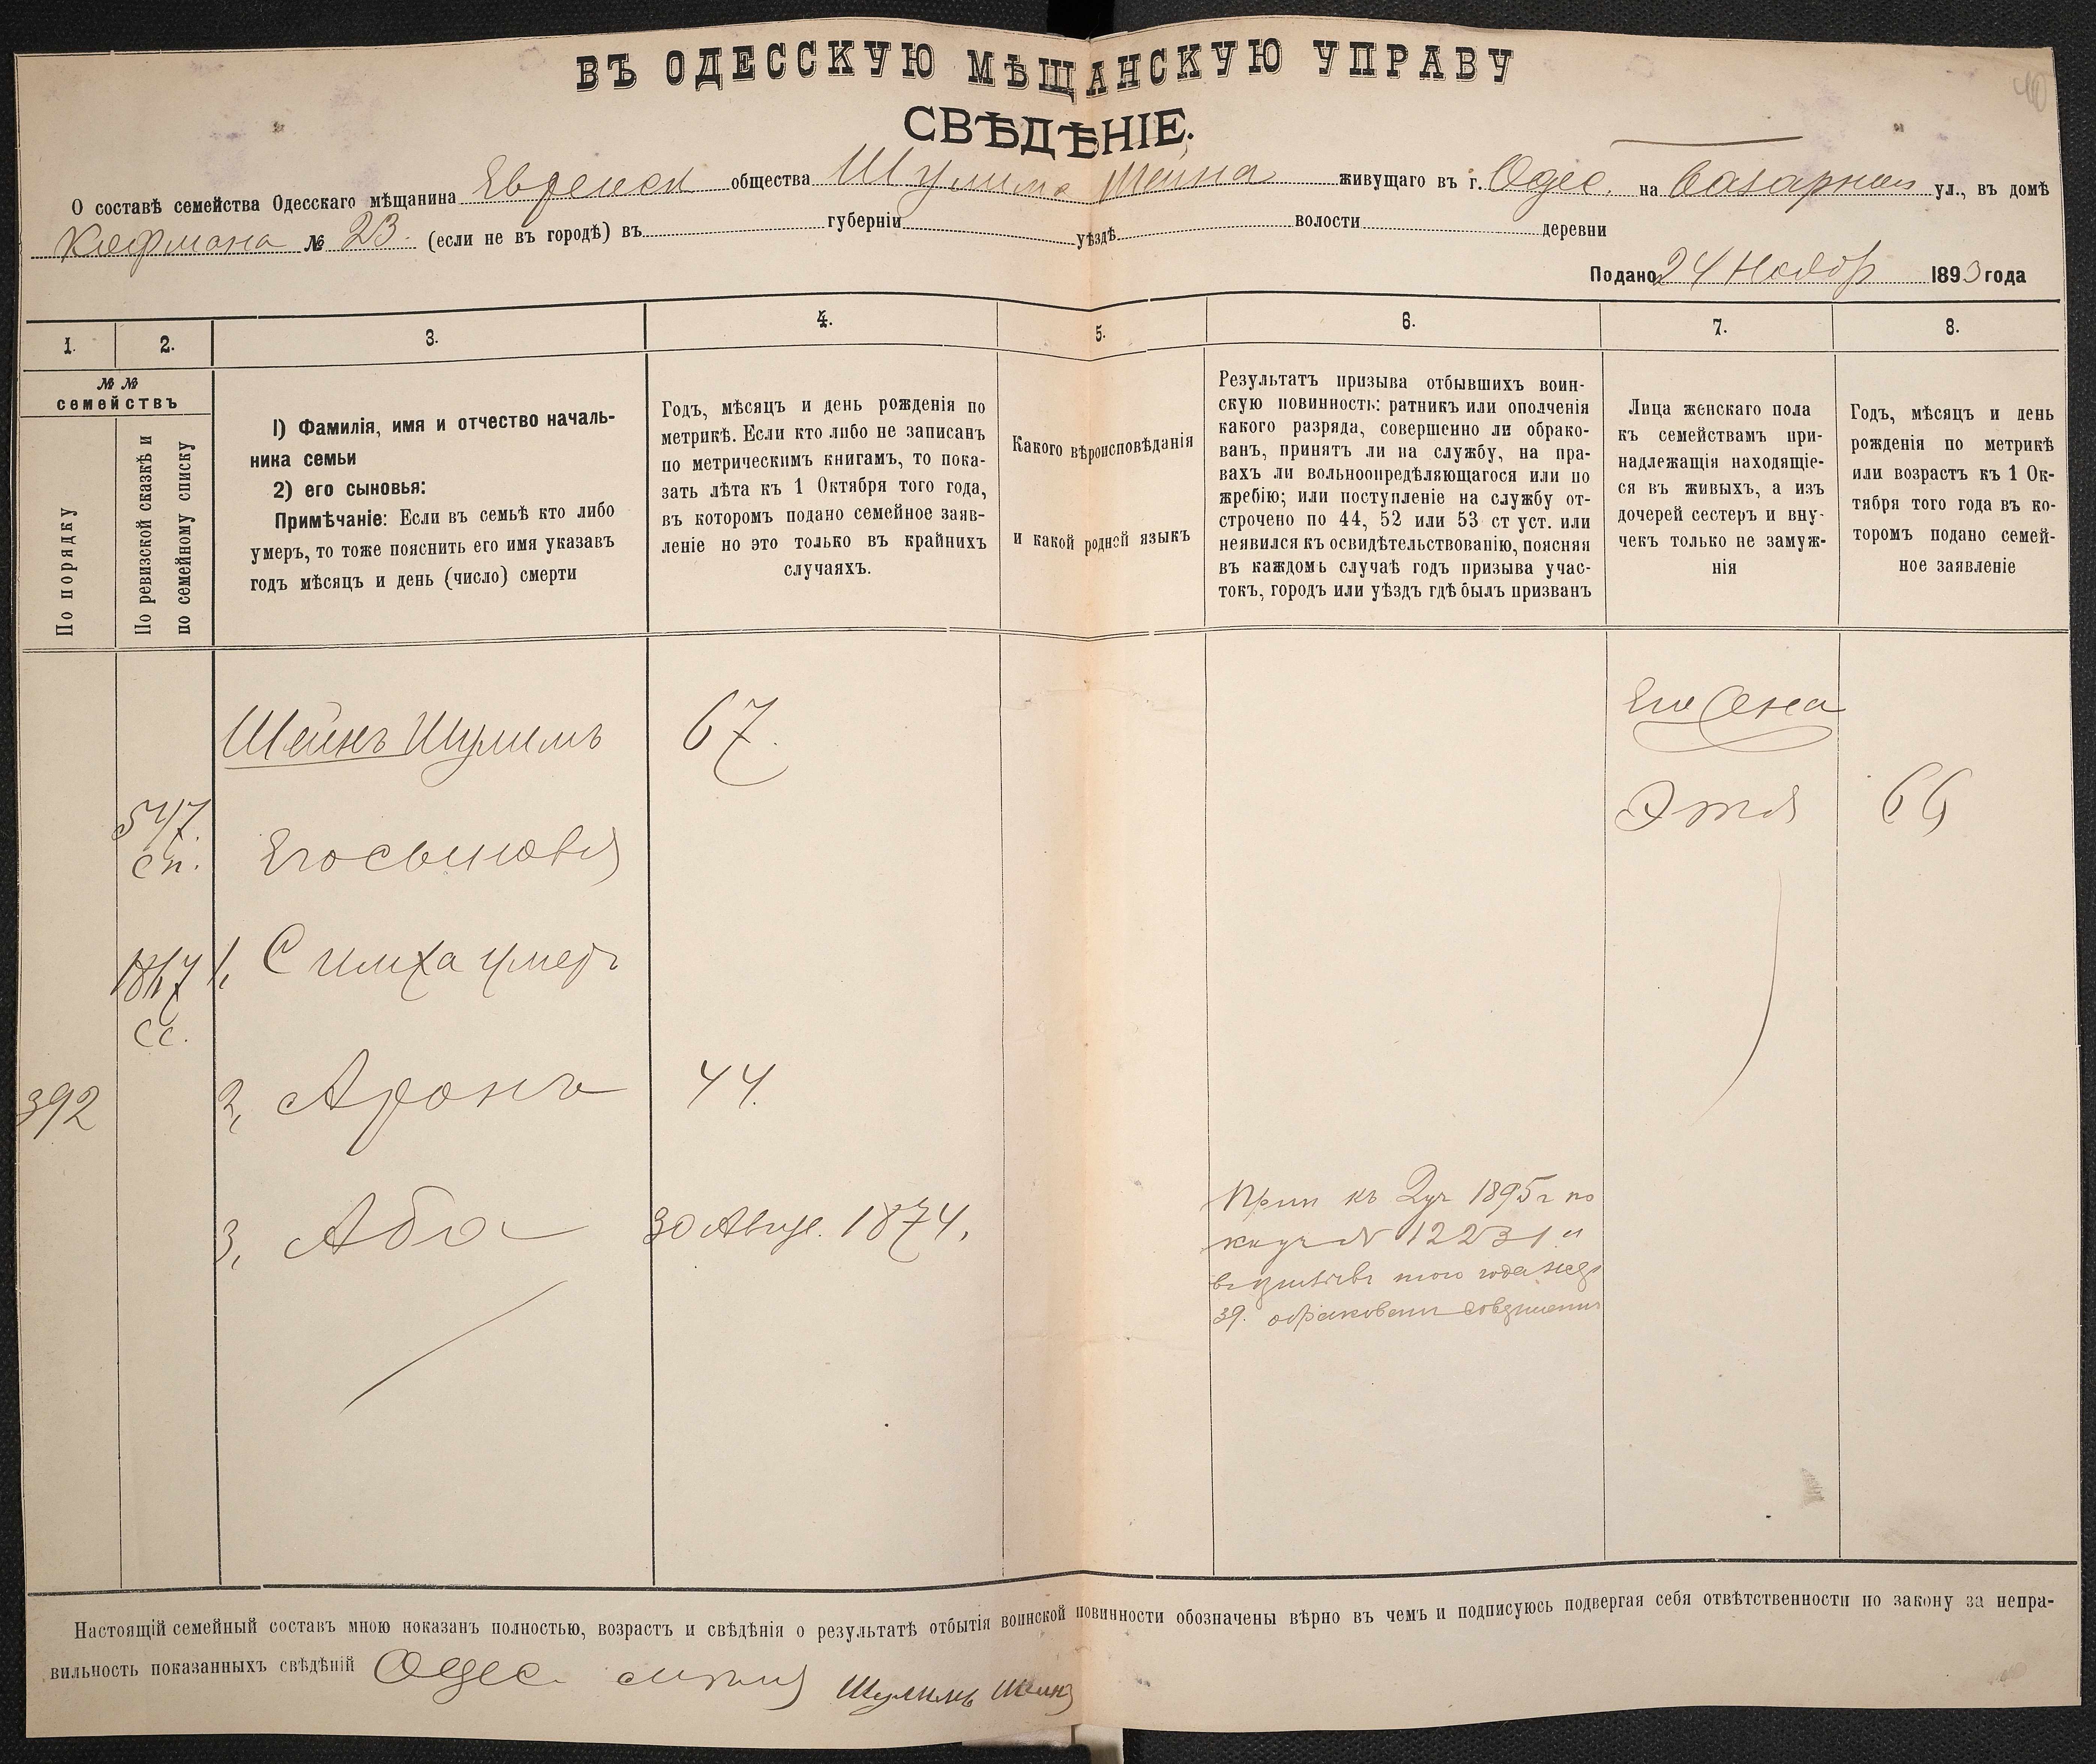 ВЪ ОДЕССКУЮ МѢЩАНСКУЮ УПРАВУ
СВѢДѢНІЕ.
О составѣ семейства Одесскаго мѣщанина Еврейск общества Шулима Шейна живущаго въ г. Одес. на Базарной ул., въ домѣ
Кофмана № 23. (если не въ городѣ) въ губерніи уѣздѣ волости деревни
Подано 24 Ноябр 1893 года
1. 2. 3. 4. 5. 6. 7. 8.
№ №
семействъ
По порядку
По ревизской сказкѣ и
по семейному списку
1) Фамилія, имя и отчество началь-
ника семьи
2) его сыновья:
Примѣчаніе: Если въ семьѣ кто либо
умеръ, то тоже пояснить его имя указавъ
годъ мѣсяцъ и день (число) смерти
Годъ, мѣсяцъ и день рожденія по
метрикѣ. Если кто либо не записанъ
по метрическимъ книгамъ, то пока-
зать лѣта къ 1 Октября того года,
въ которомъ подано семейное заяв-
леніе но это только въ крайнихъ
случаяхъ.
Какого вѣроисповѣданія
и какой родной языкъ
Результатъ призыва отбывшихъ воин-
скую повинность: ратникъ или ополченія
какого разряда, совершенно ли обрако-
ванъ, принятъ ли на службу, на пра-
вахъ ли вольноопредѣляющагося или по
жребію; или поступленіе на службу от-
строчено по 44, 52 или 53 ст уст. или
неявился къ освидѣтельствованію, поясняя
въ каждомъ случаѣ годъ призыва учас-
токъ, городъ или уѣздъ гдѣ былъ призванъ
Лица женскаго пола
къ семействамъ при-
надлежащія находящіе-
ся въ живыхъ, а изъ
дочерей сестеръ и вну-
чекъ только не замуж-
нія
Годъ, мѣсяцъ и день
рожденія по метрикѣ
или возрастъ къ 1 Ок-
тября того года въ ко-
торомъ подано семей-
ное заявленіе
Шейнъ Шулимъ 67. Его жена
547.
сп. Его сыновья Этя 66
1, Симха умеръ
сс.
392 2, Аронъ 44.
3, Аба 30 Авгус. 1874.
Прип къ 2 уч 1895 г по
№ 12231 и
того года жер
39. обракованъ совершенно
Настоящій семейный составъ мною показанъ полностью, возрастъ и свѣдѣнія о результатѣ отбытія воинской повинности обозначены вѣрно въ чемъ и подписуюсь подвергая себя отвѣтственности по закону за непра-
вильность показанныхъ свѣдѣній Одес. Шулимъ Шеинъ
40